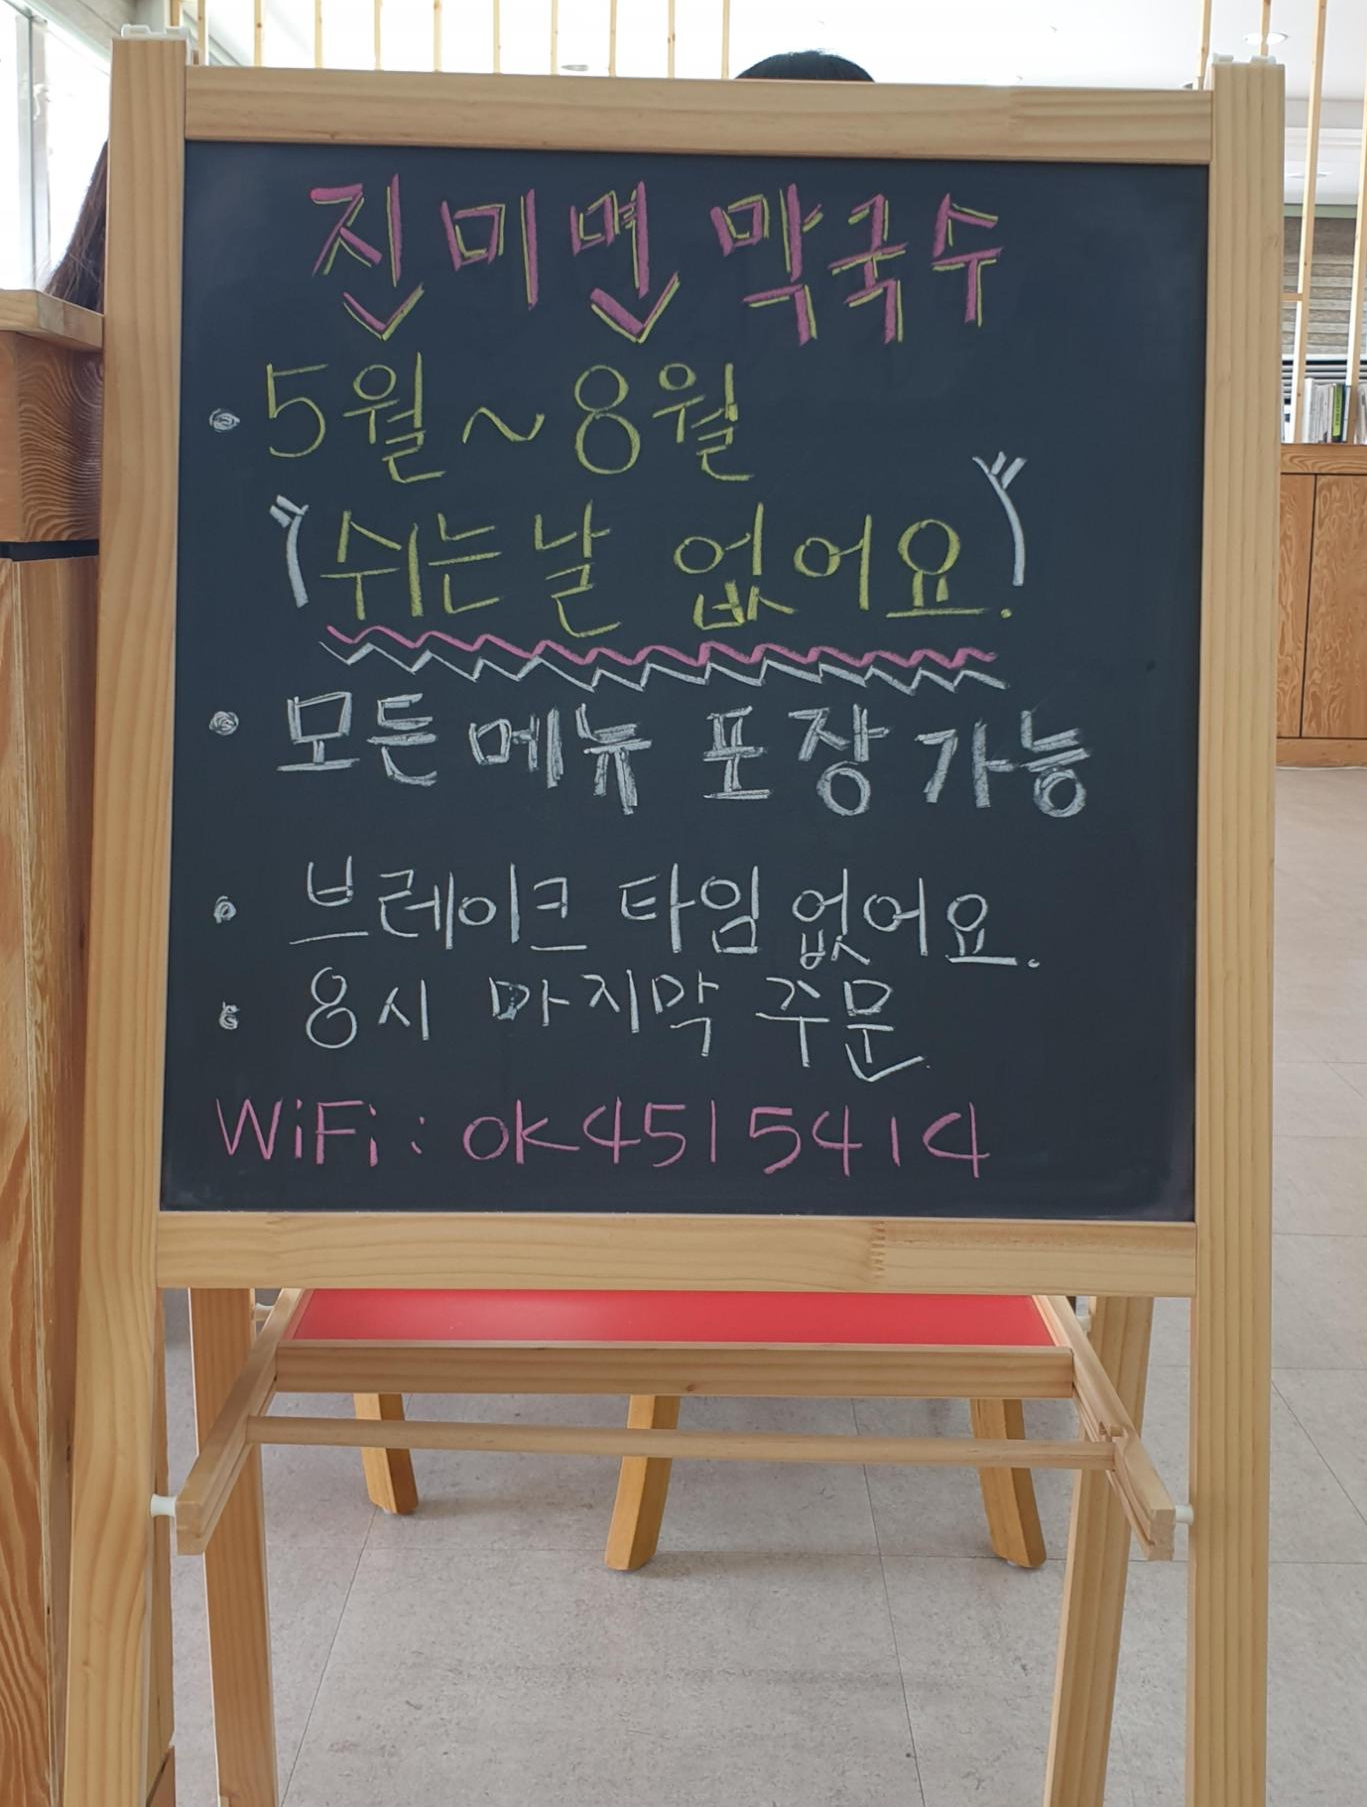 진미면 막국수
• 5월~8월
쉬는날 없어요.
• 모든메뉴 포장 가능
• 브레이크 타임 없어요.
• 8시 마지막 주문.
WiFi : OK4515414